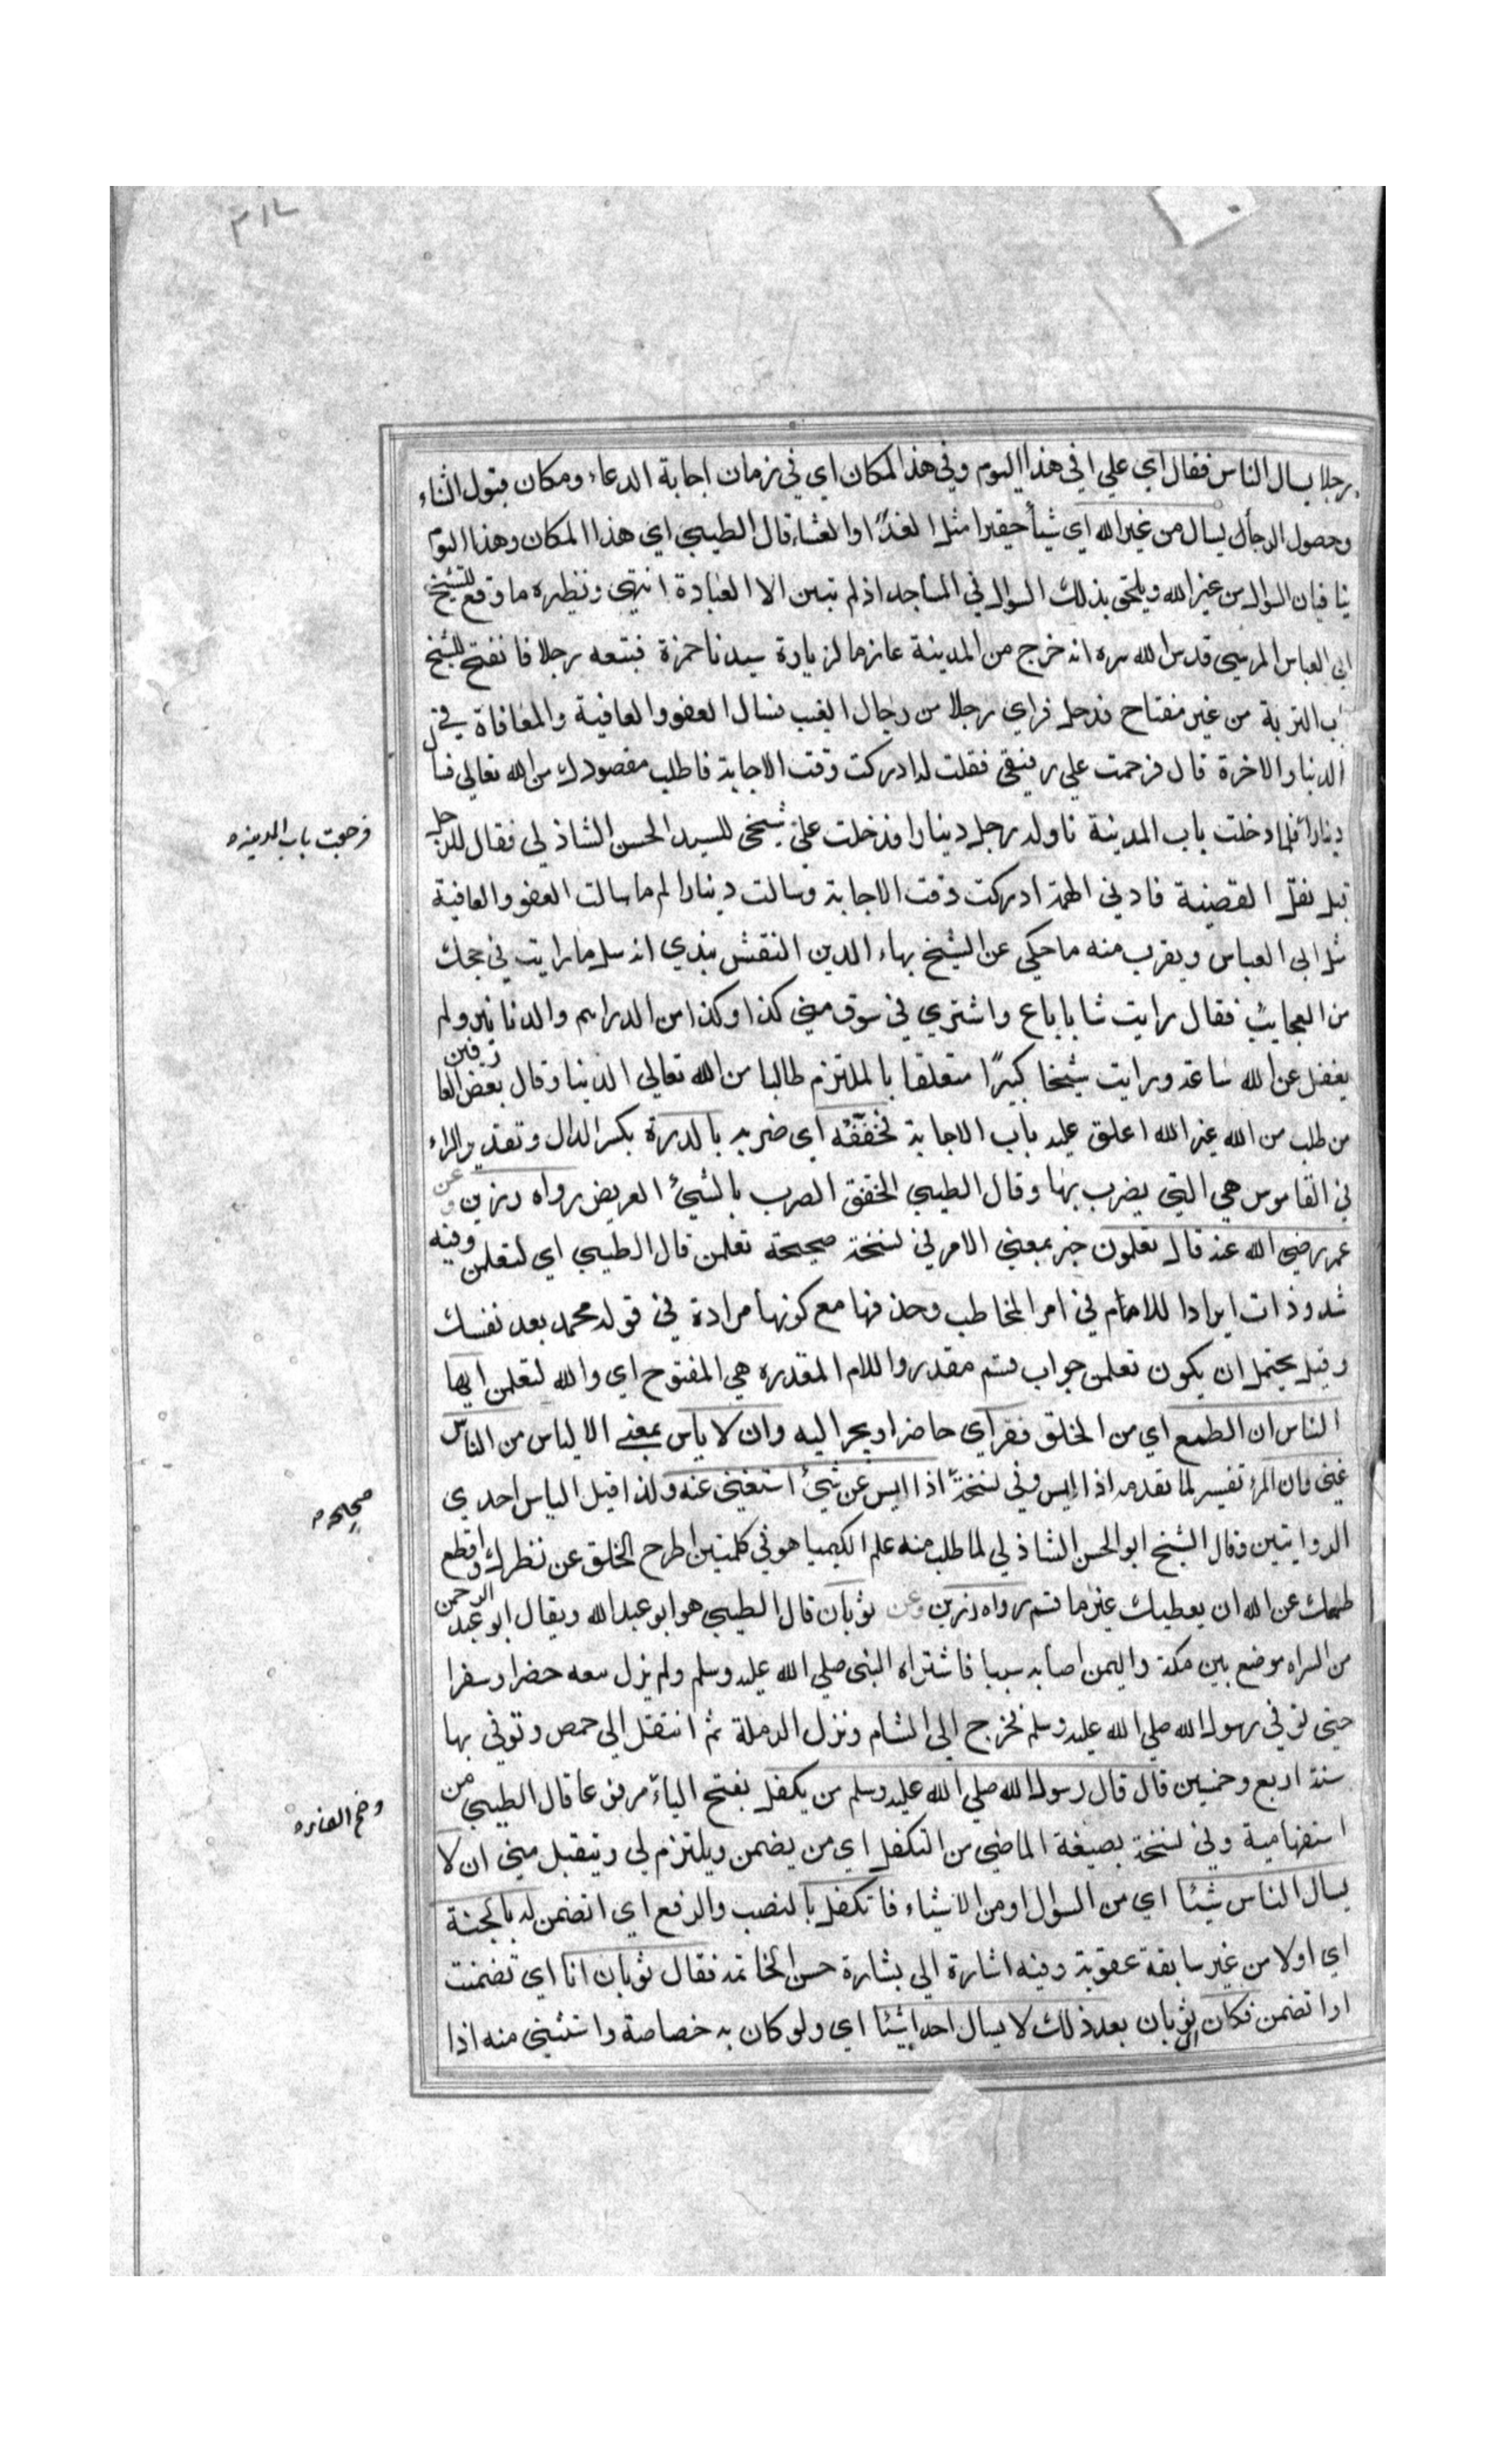 ٣١٤
رجلا يسال الناس فقال اي علي افي هذا اليوم وفي هذا المكان اي في زمان اجابة الدعاء ومكان قبول الثناء
وحصول الرجأل يسال من غير الله اي شيأ حقيرا مثل الغدا او العشاء قال الطيبي اي هذا المكان وهذا اليوم
ينا فيان السوال من غير الله ويلحق بذلك السوال في المساجد اذ لم تبين الا العبادة انتهي ونظيره ما وقع للشيخ
ابي العباس المرسي قدس الله سره انه خرج من المدينة عازما لزيارة سيدنا حمزة فتبعه رجلا فانفتح للشيخ
باب التربة من غير مفتاح فدخل فراي رجلا من رجال الغيب فسال العفو والعافية والمعافاة في
الدنيا والاخرة قال فرحمت علي رفيقي فقلت له ادركت وقت الاجابة فاطلب مقصودك من الله تعالي فسأل
دينارا فلما دخلت باب المدينة ناوله رجل دينارا فدخلت علي شيخي للسيد الحسن الشاذلي فقال للرجل
فرجعت باب المدينة ه
قبل نقل القضية فادني الهمة ادركت وقت الاجابة وسالت دينارا لم ما سالت العفو والعافية
مثل ابي العباس ويقرب منه ما حكي عن الشيخ بهاء الدين النقشبندي انه سل ما رايت في حجك
من العجايب فقال رايت شابا باع واشتري في سوق مني كذا وكذا من الدراهم والدنانير ولم
يغفل عن الله ساعة ورايت شيخا كبيرًا متعلقا بالملتزم طالبا من الله تعالي الدنيا وقال بعض العارفين
من طلب من الله غير الله اغلق عليه باب الاجابة فخفقه اي ضربه بالدرة بكسر الدال وتقدير الراء
في القاموس هي التي يضرب بها وقال الطيبي الخفق الضرب بالشيئ العريض رواه رزين وعن
عمر رضي الله عنه قال تعلمون خبر بمعني الامر في نسخة صحيحة تعلمن قال الطيبي اي لتعلمن وفيه
شذوذات ايرادا للامام في امر المخاطب وحذفها مع كونها مرادة في قوله محمد بعد نفسك
وقيل يحتمل ان يكون تعلمن جواب قسم مقدر واللام المقدره هي المفتوح اي والله لتعلمن ايها
الناس ان الطمع اي من الخلق فقر اي حاضر او يجر اليه وان لا ياس بمعني الالياس من الناس
غني وان المرء تفسير لما تقدمه اذا ايس وفي نسخة اذا ايس عن شيئ استغني عنه ولذا قيل الياس احدي
صحيحة ه
الروايتين وقال الشيخ ابو الحسن الشاذلي لما طلب منه علم الكيميا هو في كلمتين اطرح الخلق عن نظرك واقطع
طمعك عن الله ان يعطيك غير ما قسم رواه رزين وعن ثوبان قال الطيبي هو ابو عبد الله ويقال ابو عبد الرحمن
من السراه موضع بين مكة واليمن اصابه سببا فاشتراه النبي صلي الله عليه وسلم ولم يزل معه حضرا وسفرا
حتي توفي رسول الله صلي الله عليه وسلم فخرج الي الشام ونزل الرملة ثم انتقل الي حمص وتوفي بها
سنة اربع وخمسين قال قال رسول الله صلي الله عليه وسلم من يكفل بفتح الياء مرفوعا قال الطيبي من
وضم الفاء ه
استفهامية وفي نسخة بصيغة الماضي من التكفل اي من يضمن ويلتزم لي ويتقبل مني ان لا
يسال الناس شيئا اي من السوال او من الاشياء فاتكفل بالنصب والرفع اي اتضمن له بالجنة
اي اولا من غير سابقة عقوبة وفيه اشارة الي بشارة حسن الخاتمة فقال ثوبان انا اي تضمنت
اوا تضمن فكان ثوبان بعد ذلك لا يسال احدا شيئا اي ولو كان به خصاصة واستثني منه اذا